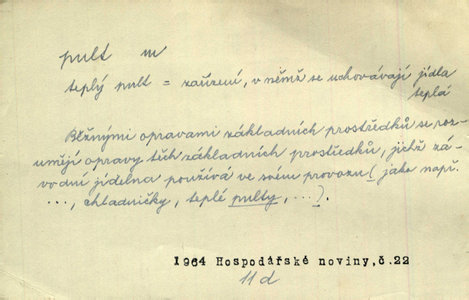 pult m
teplý pult = zařízení, v němž se uchovávají jídla
teplá
Běžnými opravami základních prostředků se roz-
umějí opravy těch základních prostředků, jichž zá-
vodní jídelna používá ve svém provozu (jako např.
..., chladničky, teplé pulty, ...).
1964 Hospodářské noviny, č.22
11 d